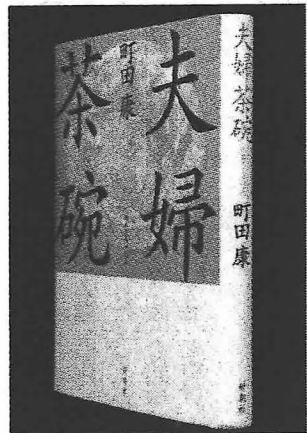 夫婦
茶碗
町田康
夫婦茶碗
町田康